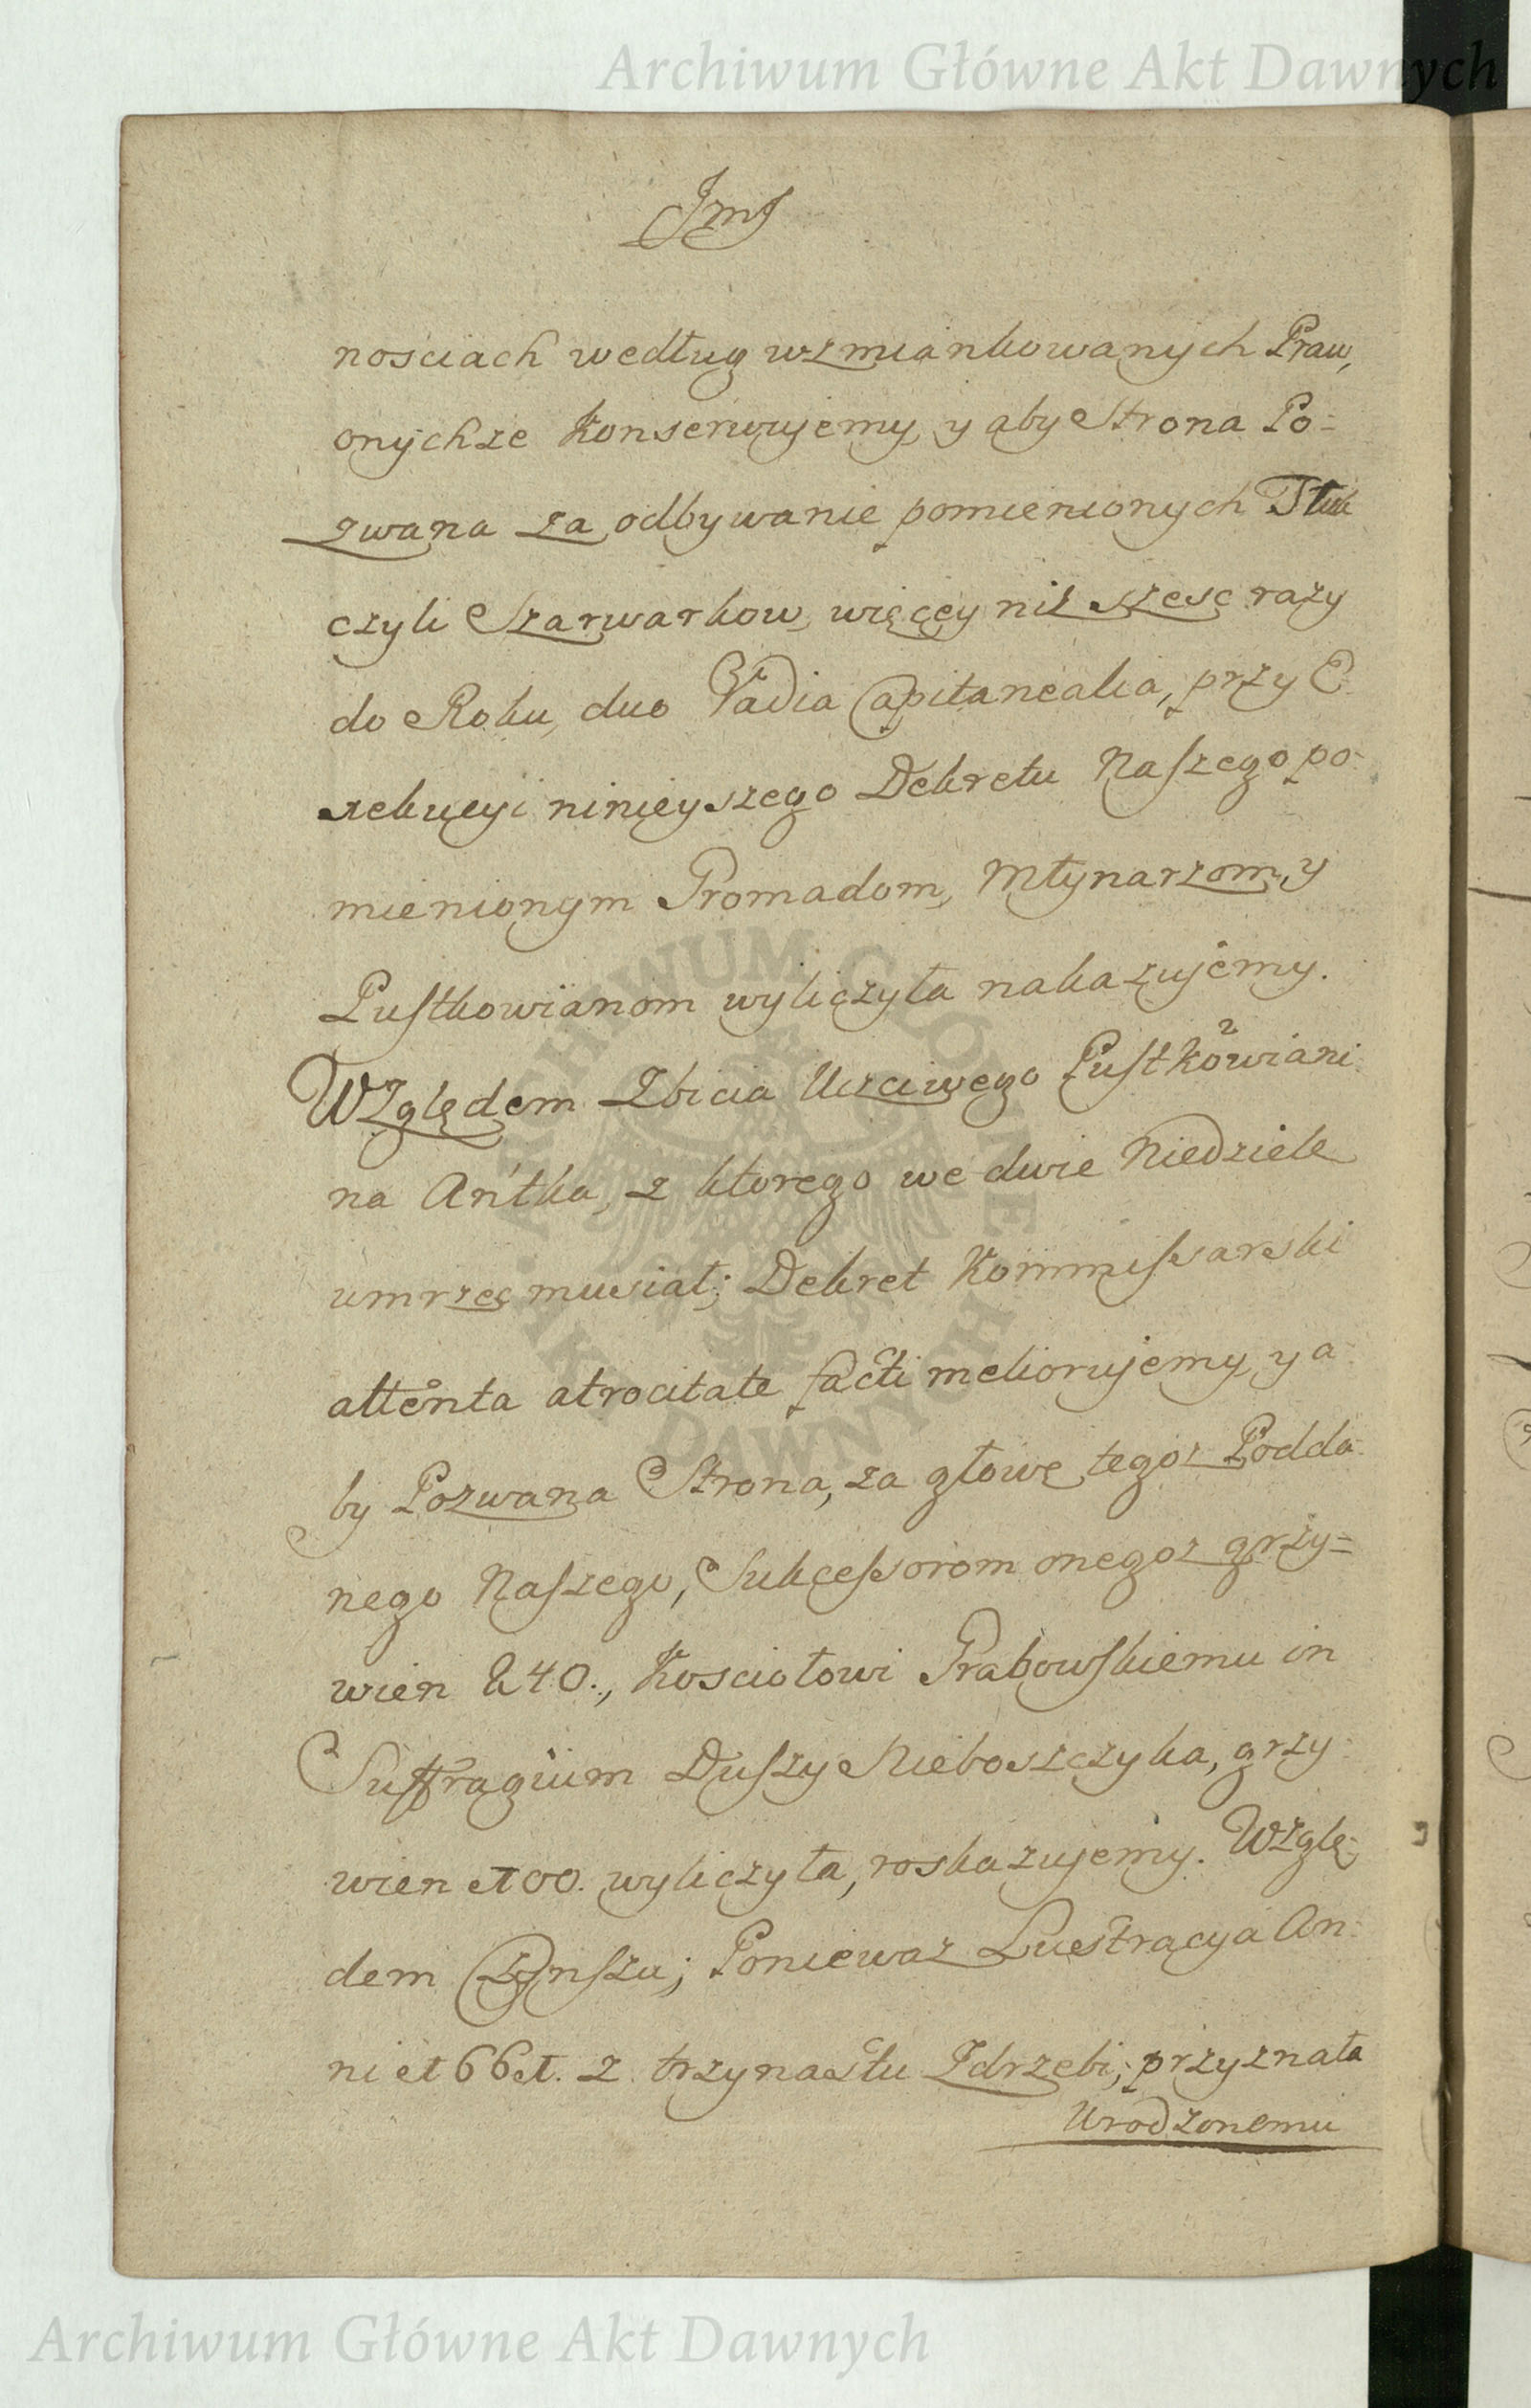 Archiwum Główne Akt Dawnych
JmJ
nosciach według wzmiankowanych Praw,
onychze Konserwujemy, y aby Strona Po=
zwana za odbywanie pomienionych Tłuk
czyli Szarwarkow, więcey niż szesc razy
do Roku, duo Vadia Capitanealia, przy E
xekucyi ninieyszego Dekretu Naszego po-
mienionym Gromadom, Młynarzom, y
Pustkowianom wyliczyła nakazujemy.
Względem Zbicia Uczciwego Pustkowiani
na Antka, z ktorego we dwie Niedziele
umrzec musiał; Dekret Kommissarski
attenta atrocitate facti meliorujemy, y a
by Pozwana Strona, za głowę tegoz Podda-
nego Naszego, Sukcessorom onegoz grzy=
wien 240., Kosciołowi Grabowskiemu in
Suffragium Duszy Nieboszczyka, grzy-
wien 100. wyliczyła, roskazujemy. Wzglę-
dem Czynszu; Poniewaz Lustracya An-
ni 1661. z trzynastu Zdrzebi, przyznała
Urodzonemu
ARCHIWUM GŁÓWNE
AKT DAWNYCH
Archiwum Główne Akt Dawnych